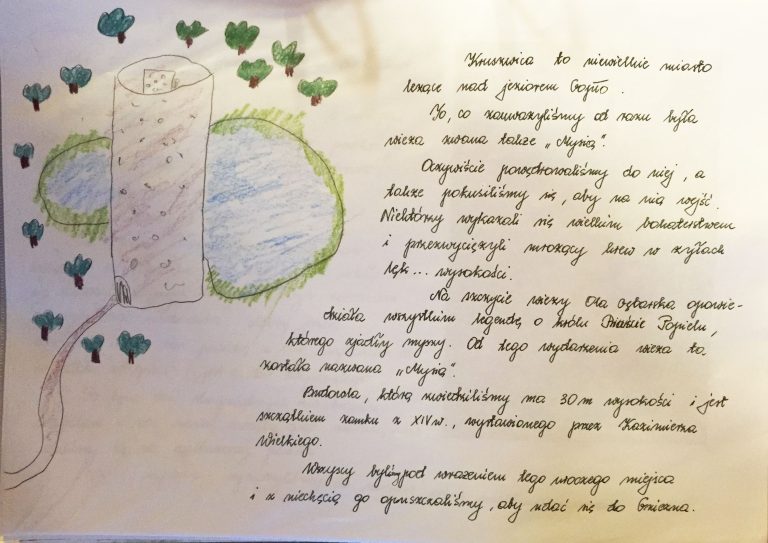 Kruszwica to niewielkie miasto
leżące nad jeziorem Gopło.
To, co zauważyliśmy od razu była
wieża zwana także „Mysią”.
Oczywiście powędrowaliśmy do niej, a
także pokusiliśmy się, aby na nią wejść.
Niektórzy wykazali się wielkim bohaterstwem
i przezwyciężyli mrożący krew w żyłach
lęk... wysokości.
Na szczycie wieży Ola opowie-
działa wszystkim legendę o królu Popielu,
którego zjadły myszy. Od tego wydarzenia wieża ta
została nazwana „Mysią”.
Budowla, którą zwiedziliśmy ma 30 m wysokości i jest
szczątkiem zamku z XIV w., wystawionego przez Kazimierza
Wielkiego.
Wszyscy byliśmy pod wrażeniem tego uroczego miejsca
i z niechęcią go opuszczaliśmy, aby udać się do Gniezna.